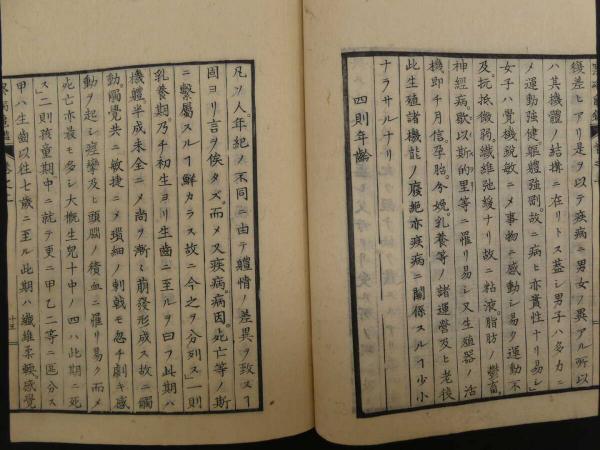 緩差ヒアリ是ヲ以テ疾病ニ男女ノ異アル所以
ハ其機體ノ結構ニ在リトス蓋シ男子ハ多力ニ
メ運動強健軀體強剛故ニ病ヒ亦實性ナリ易シ
女子ハ覺機鋭敏ニメ事物ニ感動シ易ク運動不
及抗抵微弱纖維弛緩ナリ故ニ粘液脂肪ノ鬱畜
神經病歇以私的里等ニ罹リ易シ又生殖器ノ活
機即チ月信孕胎分娩乳養等ノ諸運營及ヒ老後
此生殖諸機能ノ廢絶亦疾病ニ關係スルヿ少小
ナラサルナリ
四則年齡
凡ソ人年紀ノ不同ニ由テ軆情ノ差異ヲ致スヿ
固ヨリ言ヲ俟タズ而メ又疾病病因死亡等ノ斯
ニ繫屬スルヿ鮮カラス故ニ今之ヲ分列ス一則
乳養期乃チ初生ヨリ生齒ニ至ルヲ曰フ此期ハ
機體半成未全ニメ尚ヲ漸ク萠發形成ス故ニ觸
動觸覺共ニ敏捷ニメ瑣細ノ刺戟モ忽チ劇キ感
動ヲ起シ痙攣及ヒ頭腦ノ積血ニ罹リ易ク而メ
死亡亦最モ多シ大概生兒十中ノ四ハ此期ニ死
ス二則孩童期中ニ就テ更ニ甲乙二等ニ區分ス
甲ハ生齒以往七歳ニ至ル此期ハ纖維柔輭感覺
十三